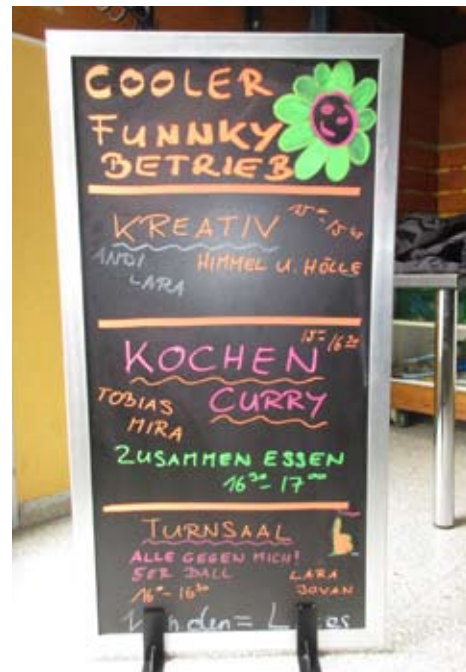 COOLER
FUNNKY
BETRIEB
KREATIV
ANDI HIMMEL U. HÖLLE
LARA
KOCHEN
TOBIAS CURRY
MIRA
ZUSAMMEN ESSEN
16³⁰- 17⁰⁰
TURNSAAL
ALLE GEGEN MICH!
5ER BALL LARA
JOVAN